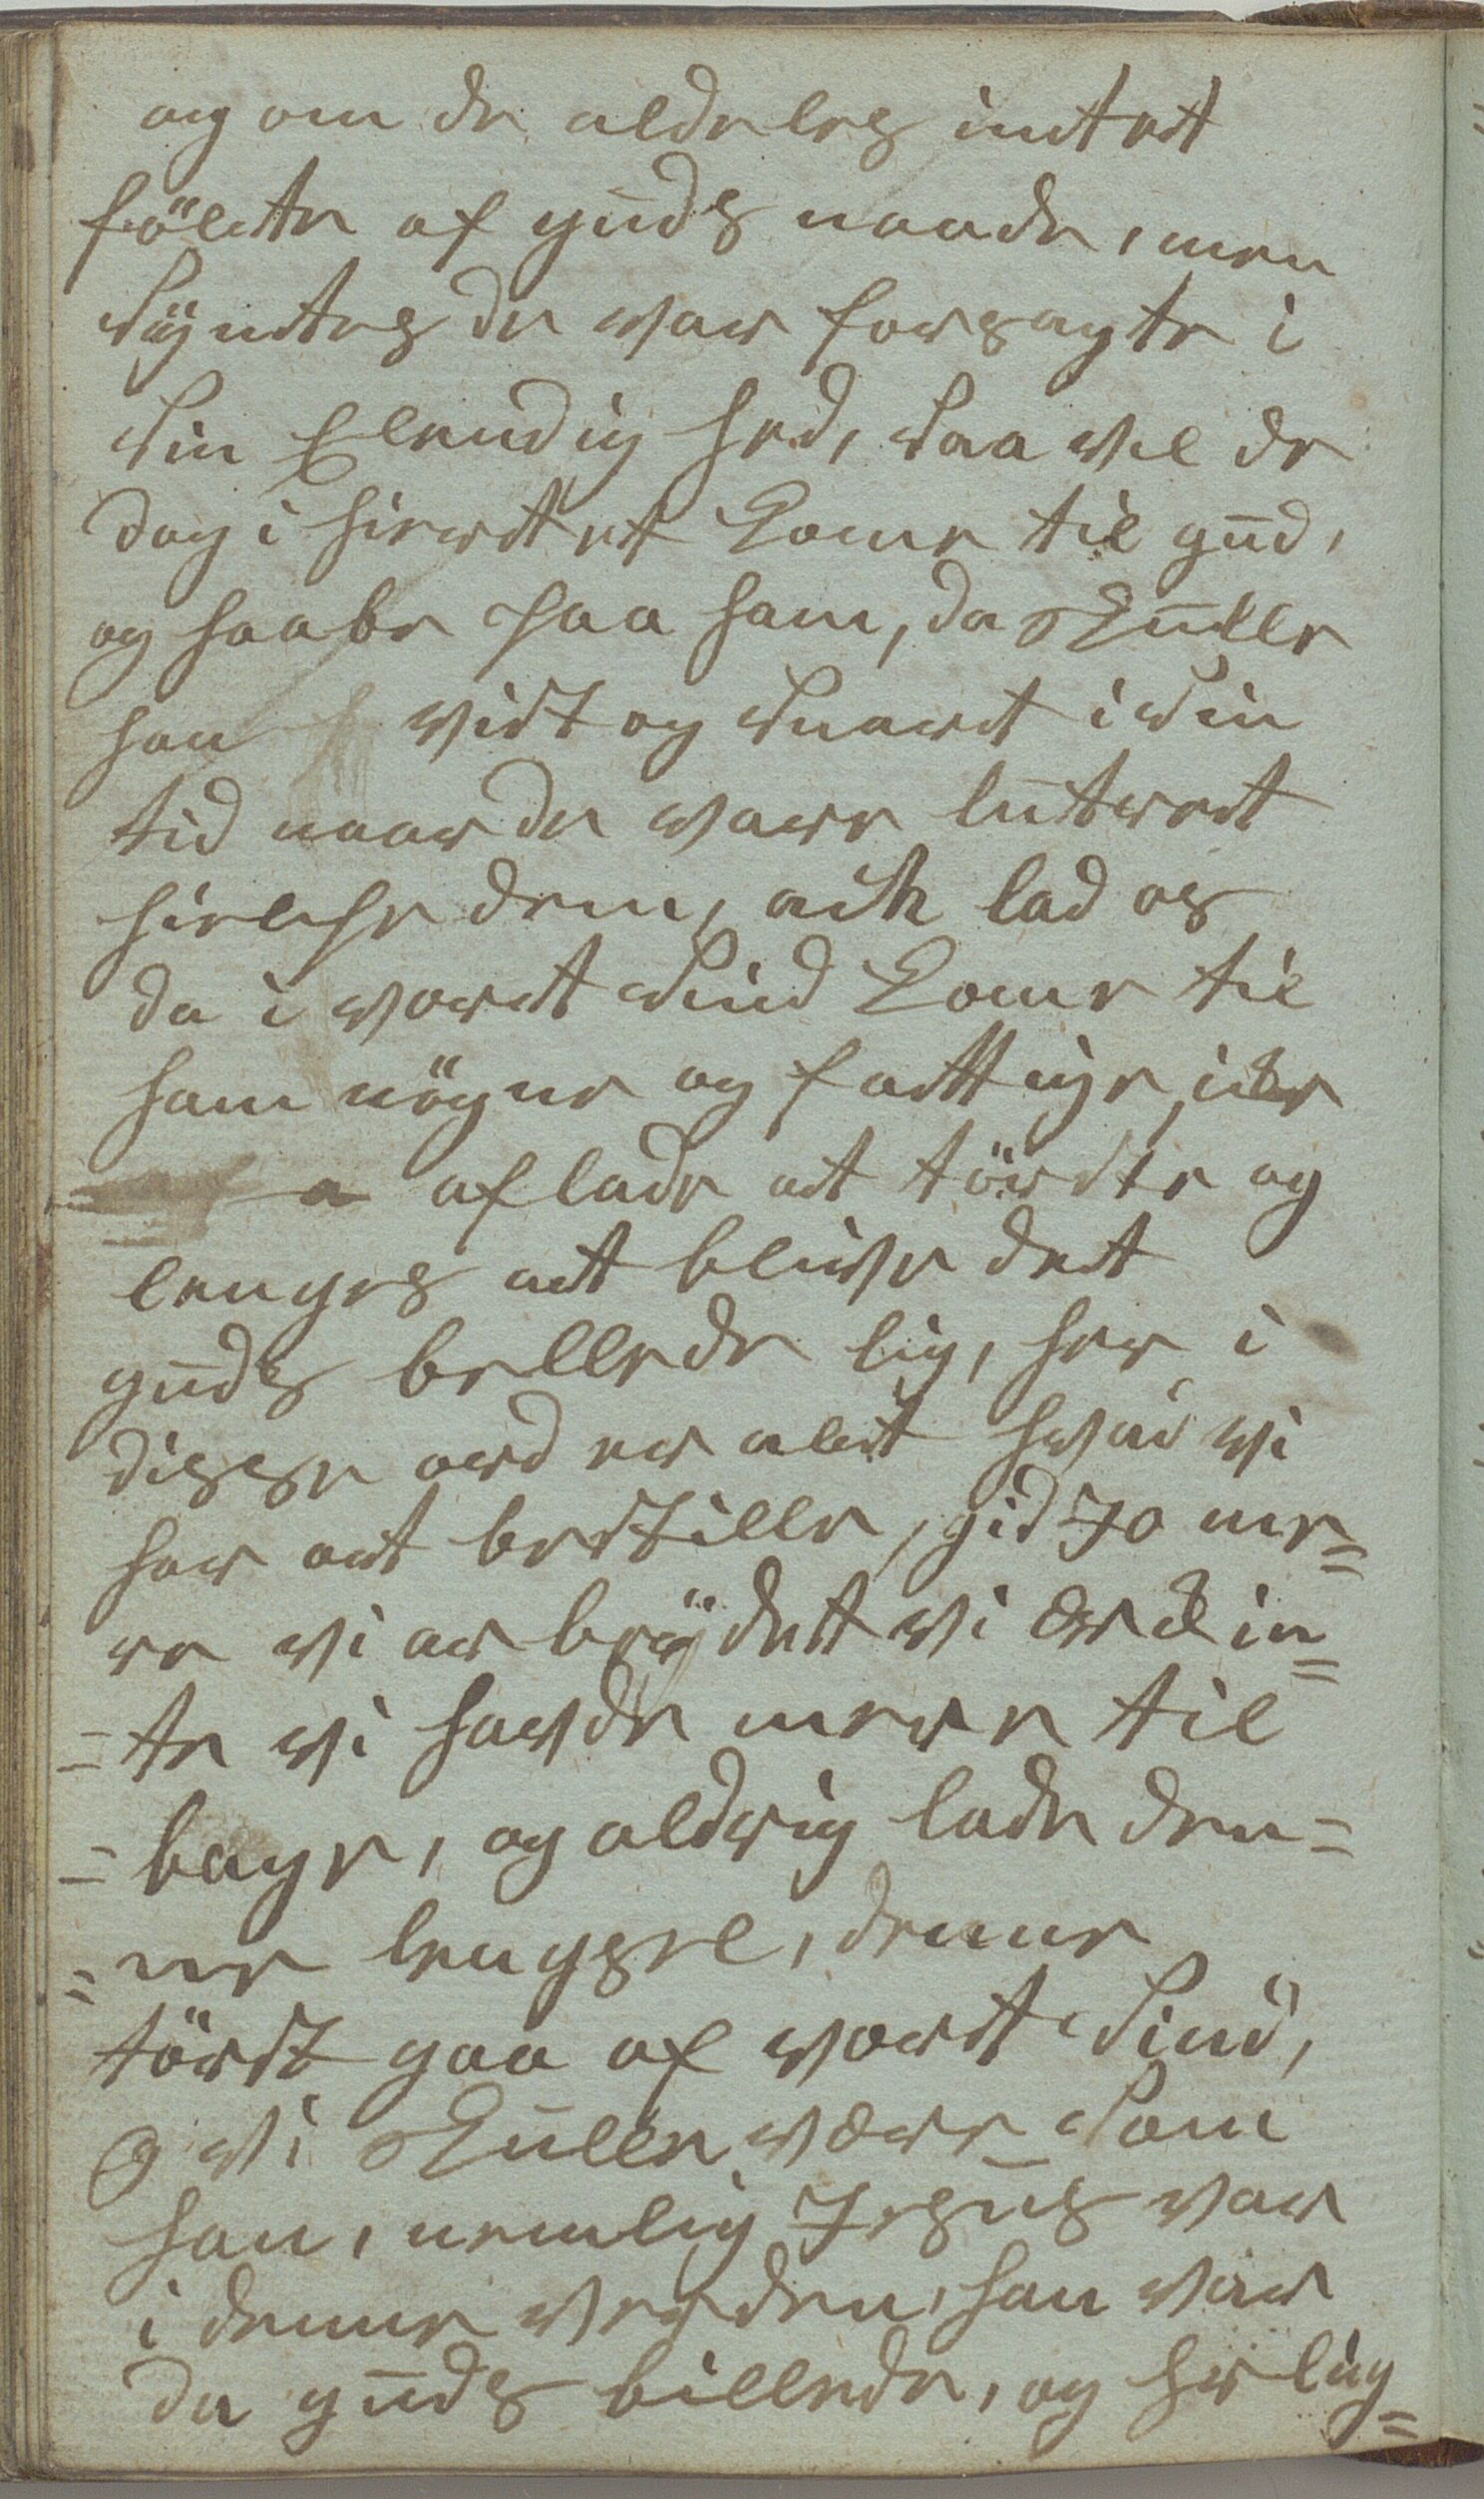 og om de aldeles intet
fölte af guds naade, men
Syntes de var forsagte i
Sin Elendig hed, Saa vel de
dog i hiertet Kome til gud,
og haabe paa ham, da Skulle
han vist og Snart i Sin
tid naar de vare lutret
hielpe dem, ach lad os
da i vort Sind Kome til
ham nögne og fattige, icke
aflade at törste og
lenges at blive det
guds bellede lig, her i
disse ord er alt hvad vi
har at bestille, gid Jo me=
re vi ar beÿdett vi
=te vi havde mere til
=bage, og aldrig lade den=
=ne lengsel, denne
törst gaa af vort Sind,
O vi Skulle være Som
han, nemlig Jesus var
i denne verden, han var
da guds billede, og her lig=